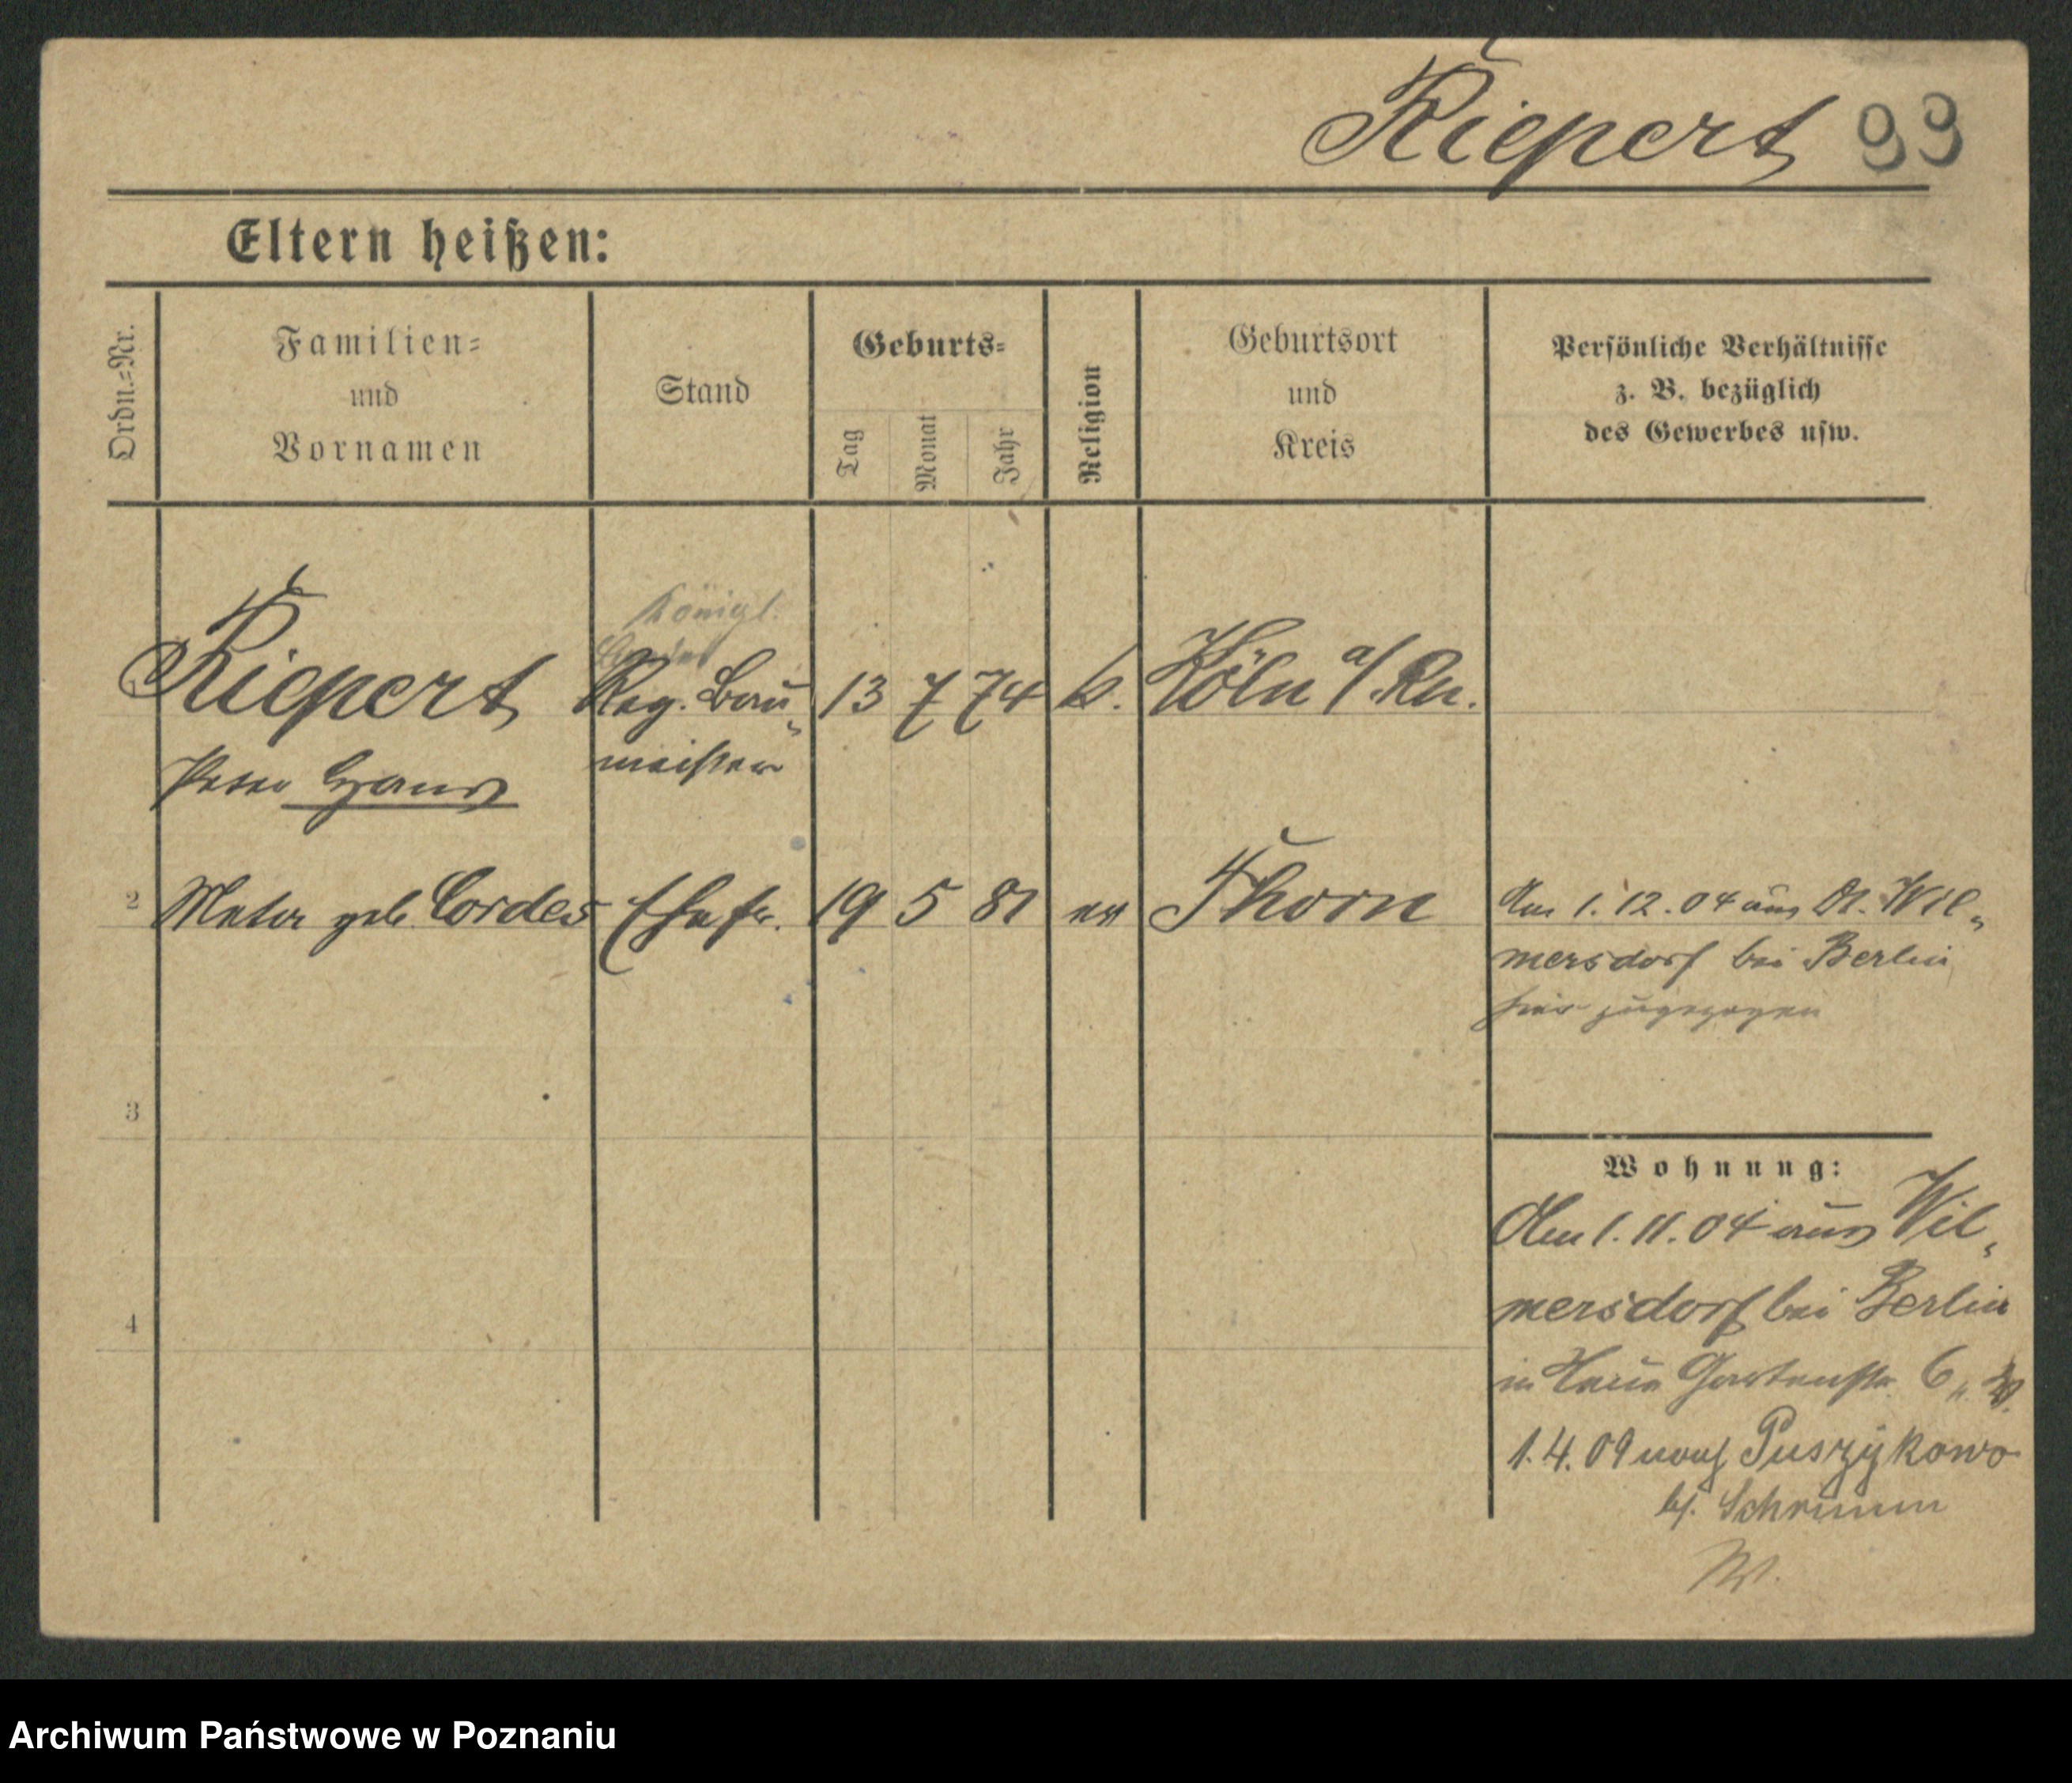 Riepert 99
Eltern heißen:
Ordn.=Nr.
Familien=
und
Vornamen
Stand
Geburts=
Tag
Monat
Jahr
Religion
Geburtsort
und
Kreis
Persönliche Verhältnisse
z. B. bezüglich
des Gewerbes usw.
Königl.
Riepert Reg. Bau„ 13 7 74 k. Köln a/Rn.
Peter Hans meister
2 Meta geb. Cordes Ehefr. 19 5 81 ev Thorn Am 1.12.04 aus Dt. Wil„
mersdorf bei Berlin
hier zugezogen
3
Wohnung:
Am 1.11.04 aus Wil„
mersdorf bei Berlin
4
in Neue Gartenstr. 6
1.4.09 nach Puszykowo
b/. Schrimm
W.
Archiwum Państwowe w Poznaniu